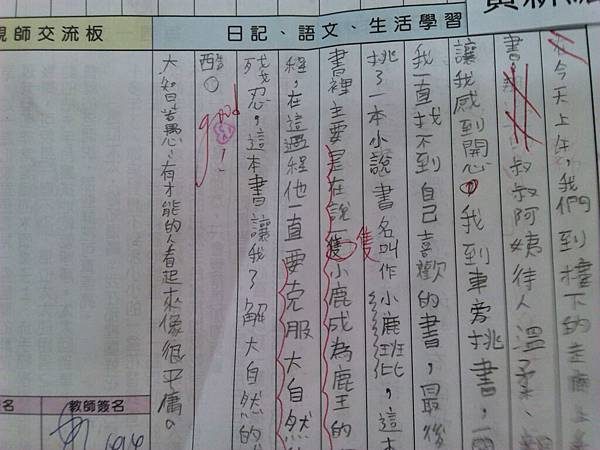 親師交流板
日記、語文、生活學習
今天上午,我們到樓下的走廊
書 叔叔阿姨待人溫柔、親
讓我感到開心,我到車旁挑書,
我一直找不到自己喜歡的書,最後
挑了一本小說書名叫作小鹿斑比,這本
書裡主要是在說一隻小鹿成為鹿王的
隻
程,在這過程他一直要克服大自然
殘忍,這本書讓我了解大自然的
酷。
good!
大智若愚:有才能的人看起來像很平庸。
名
教師簽名